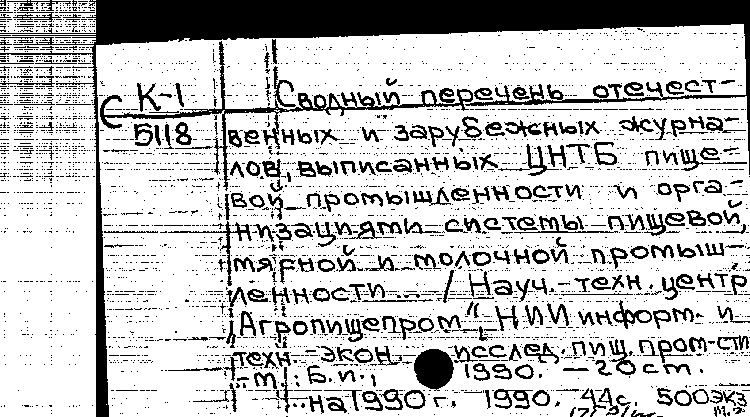 С К-1
5118
Сводный перечень отечест-
венных и зарубежных журна-
лов, выписанных ЦНТБ пище-
вой промышленности и орга-
низациями системы пищевой,
мясной и молочной промыш-
ленности... / Науч.-техн. центр
"Агропищепром", НИИ информ. и
техн.-экон. исслед. пищ. пром-сти
.-М.: Б.и., 1990. — 20 см.
...на 1990 г. 1990. 44 с. 500 экз